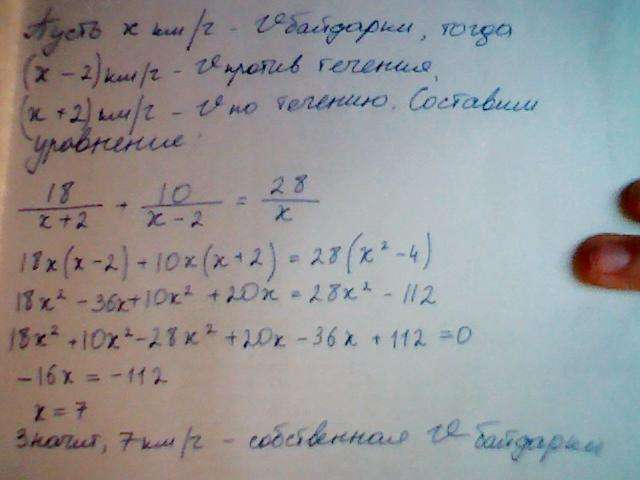 Пусть x км/ч - V байдарки, тогда
(x - 2) км/ч - V против течения,
(x + 2) км/ч - V по течению. Составим
уравнение:
18/(x+2) + 10/(x-2) = 28/x
18x(x-2)+10x(x+2) = 28(x²-4)
18x² - 36x+10x² + 20x = 28x² - 112
18x² +10x² -28x² +20x -36x +112 =0
-16x = -112
x = 7
Значит, 7 км/ч - собственная V байдарки